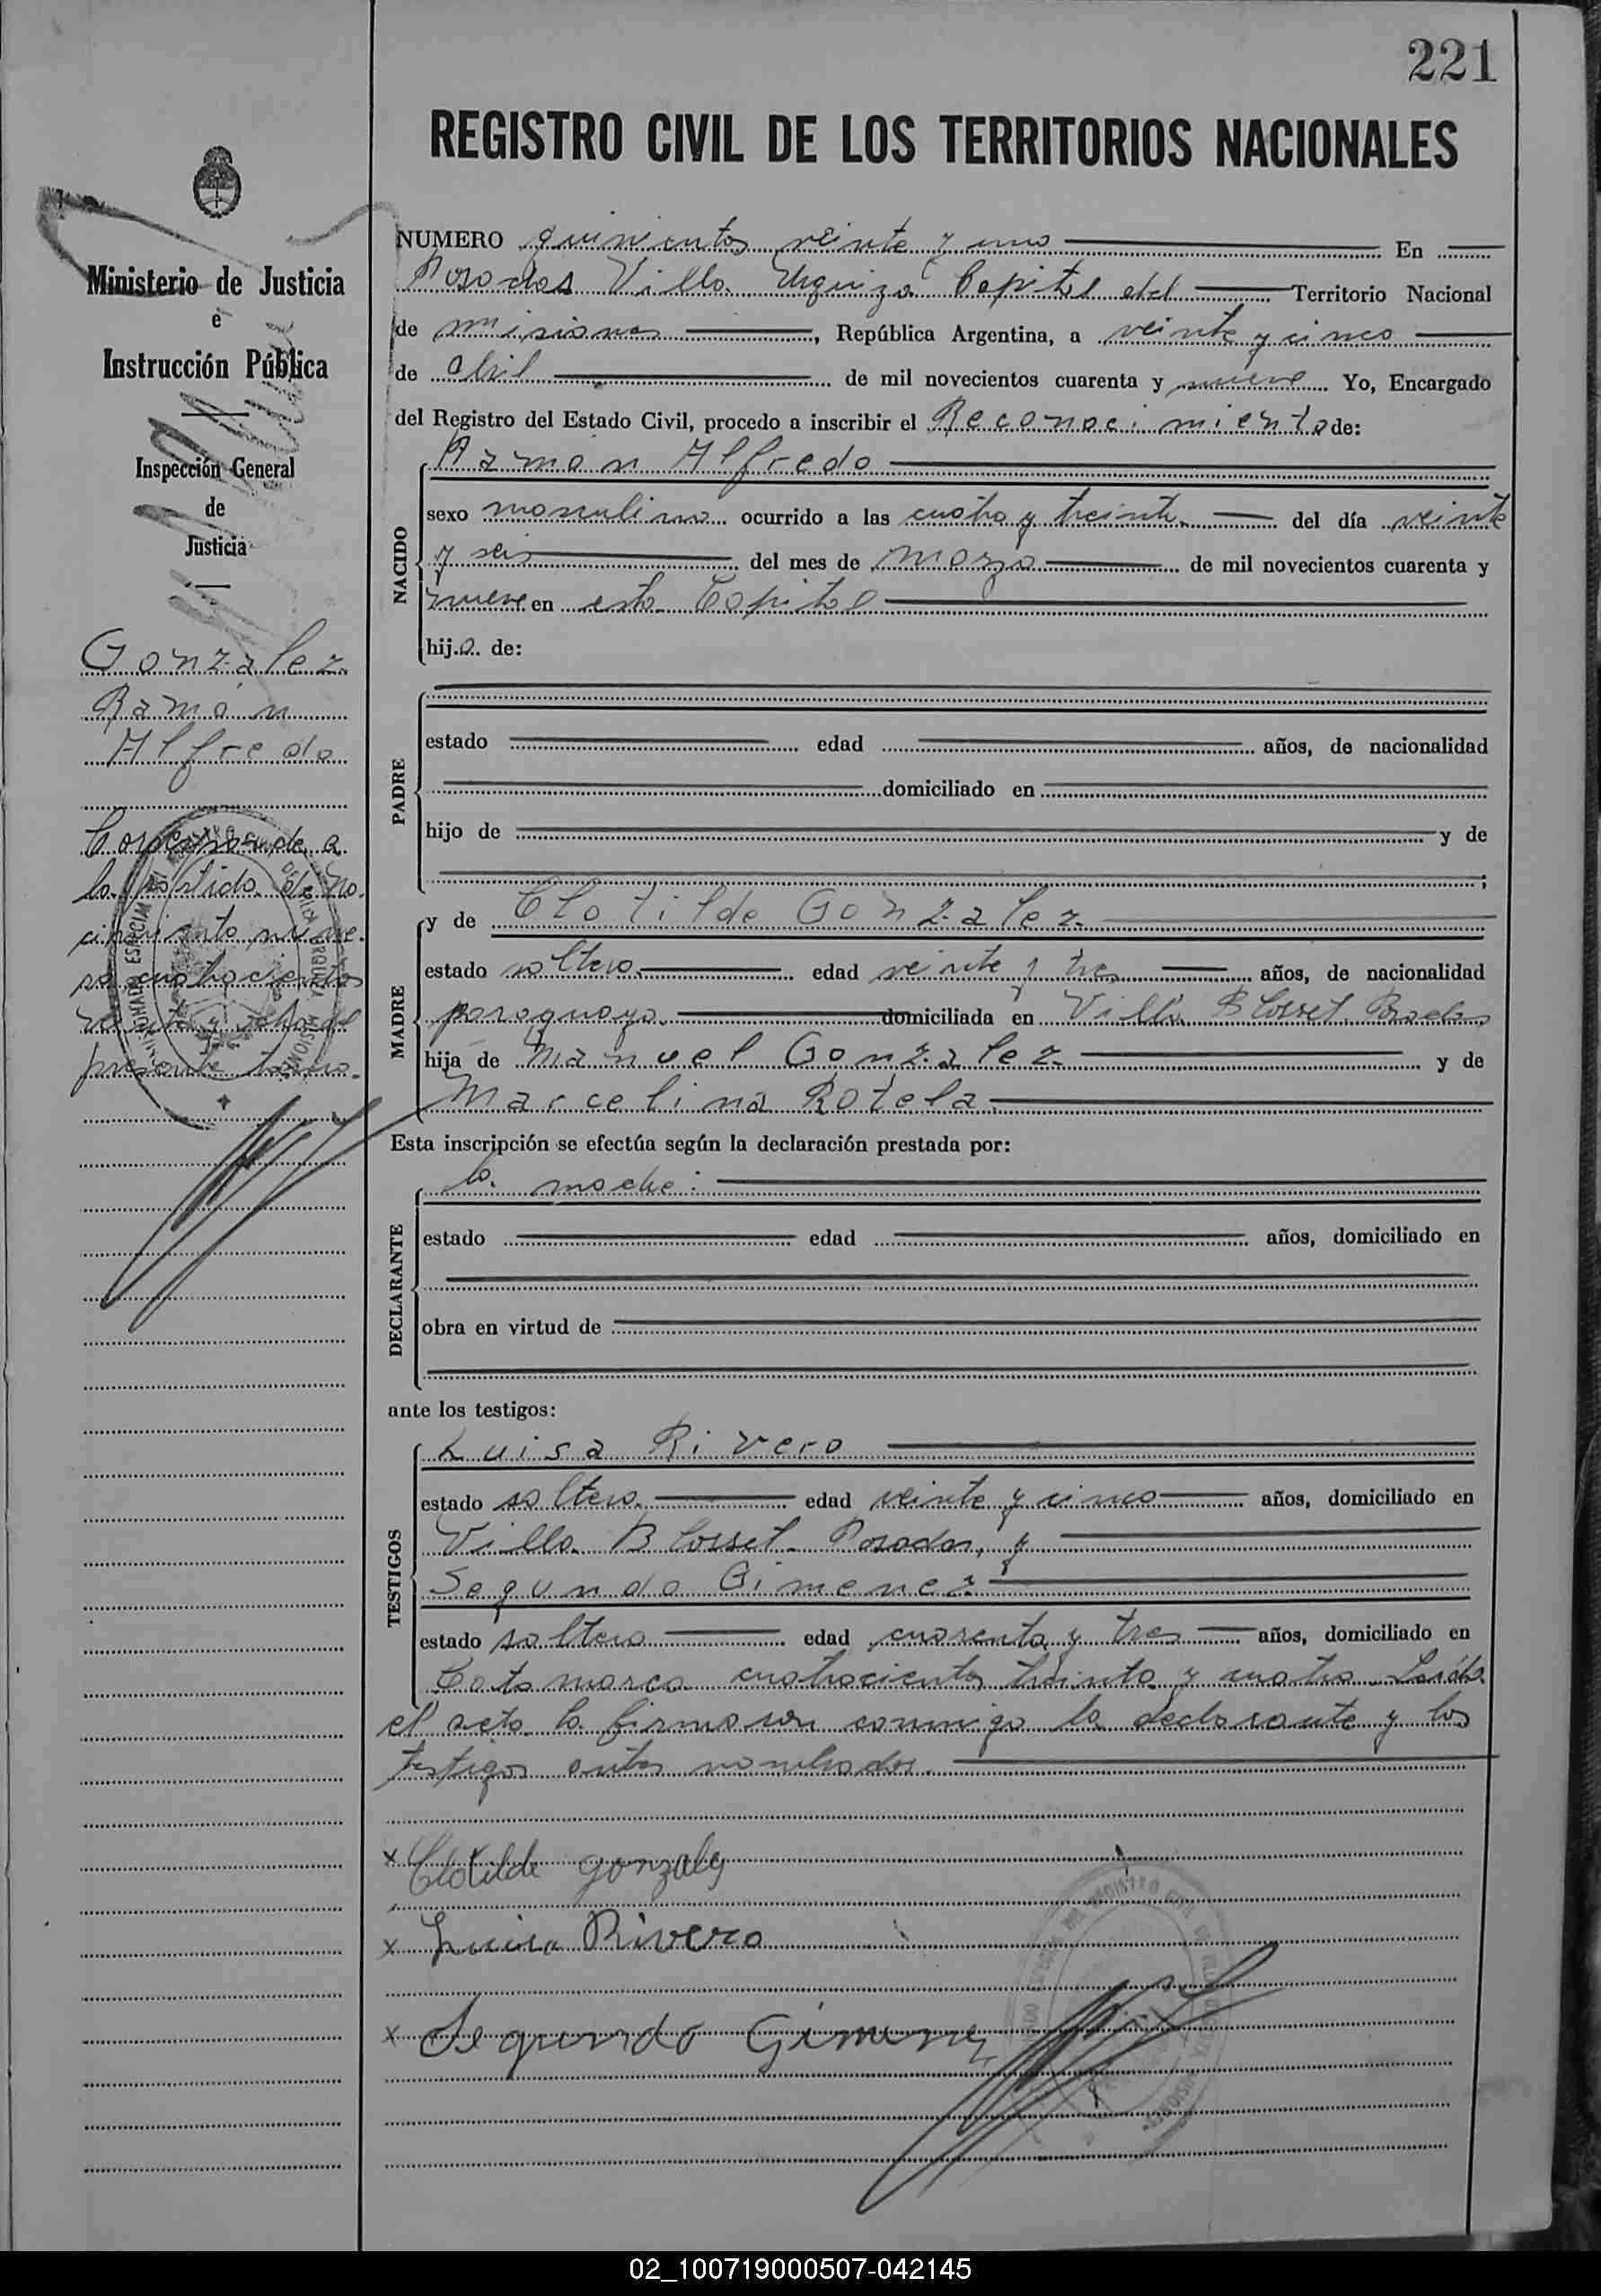 221
REGISTRO CIVIL DE LOS TERRITORIOS NACIONALES
Ministerio de Justicia
e
Instrucción Pública
Inspección General
de
Justicia
Gonzalez
Ramón
Alfredo
Corresponde a
la partida de na-
cimiento núme-
ro cuatrocientos
veinte y ocho del
presente tomo.
NUMERO quinientos veinte y uno En
Posadas Villa Urquiza Capital del Territorio Nacional
de misiones, República Argentina, a veinte y cinco
de abril de mil novecientos cuarenta y nueve Yo, Encargado
del Registro del Estado Civil, procedo a inscribir el Reconocimiento de:
NACIDO
Ramón Alfredo
sexo masculino ocurrido a las cuatro y treinta del día veinte
y seis del mes de marzo de mil novecientos cuarenta y
nueve en esta Capital
hijo de:
PADRE
estado edad años, de nacionalidad
domiciliado en
hijo de y de
;
MADRE
y de Clotilde Gonzalez
estado soltera edad veinte y tres años, de nacionalidad
paraguaya domiciliada en Villa Blosset Posadas
hija de Manuel Gonzalez y de
Marcelina Rotela
Esta inscripción se efectúa según la declaración prestada por:
DECLARANTE
la madre:
estado edad años, domiciliado en
obra en virtud de
ante los testigos:
TESTIGOS
Luisa Rivero
estado soltera edad veinte y cinco años, domiciliado en
Villa Blosset Posadas, y
Segundo Gimenez
estado soltero edad cuarenta y tres años, domiciliado en
Catamarca cuatrocientos treinta y cuatro. Leída
el acta la firmaron conmigo la declarante y los
testigos antes nombrados.
x Clotilde gonzalez
x Luisa Rivero
x Segundo Gimenez
02_100719000507-042145